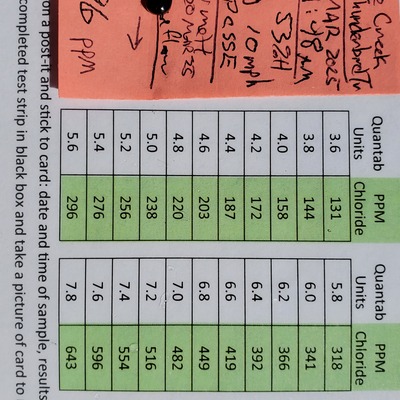 Creek
MAR 2025
10 mph
PPM
Quantab Units PPM Chloride
3.6 131
3.8 144
4.0 158
4.2 172
4.4 187
4.6 203
4.8 220
5.0 238
5.2 256
5.4 276
5.6 296
Quantab Units PPM Chloride
5.8 318
6.0 341
6.2 366
6.4 392
6.6 419
6.8 449
7.0 482
7.2 516
7.4 554
7.6 596
7.8 643
on a post-it and stick to card: date and time of sample, results
completed test strip in black box and take a picture of card to